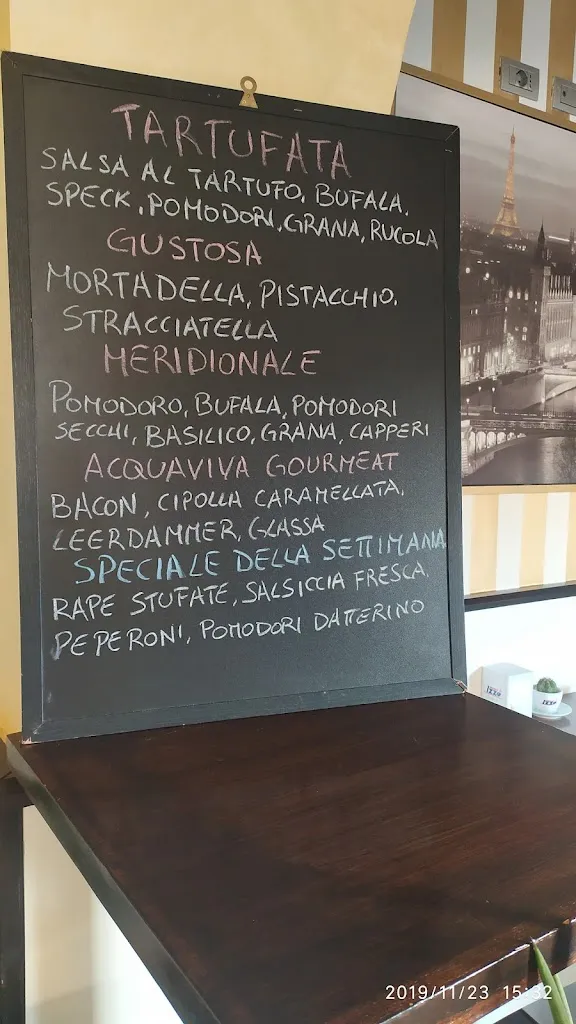 TARTUFATA
SALSA AL TARTUFO, BUFALA,
SPECK, POMODORI, GRANA, RUCOLA
GUSTOSA
MORTADELLA, PISTACCHIO,
STRACCIATELLA
MERIDIONALE
POMODORO, BUFALA, POMODORI
SECCHI, BASILICO, GRANA, CAPPERI
ACQUAVIVA GOURMEAT
BACON, CIPOLLA CARAMELLATA,
LEERDAMMER, GLASSA
SPECIALE DELLA SETTIMANA
RAPE STUFATE, SALSICCIA FRESCA,
PEPERONI, POMODORI DATTERINO
2019/11/23 15:32